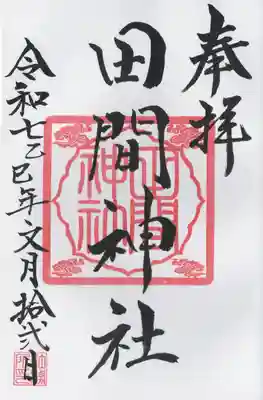 奉拝
田間神社
田間神社
令和七乙巳年文月拾弐日